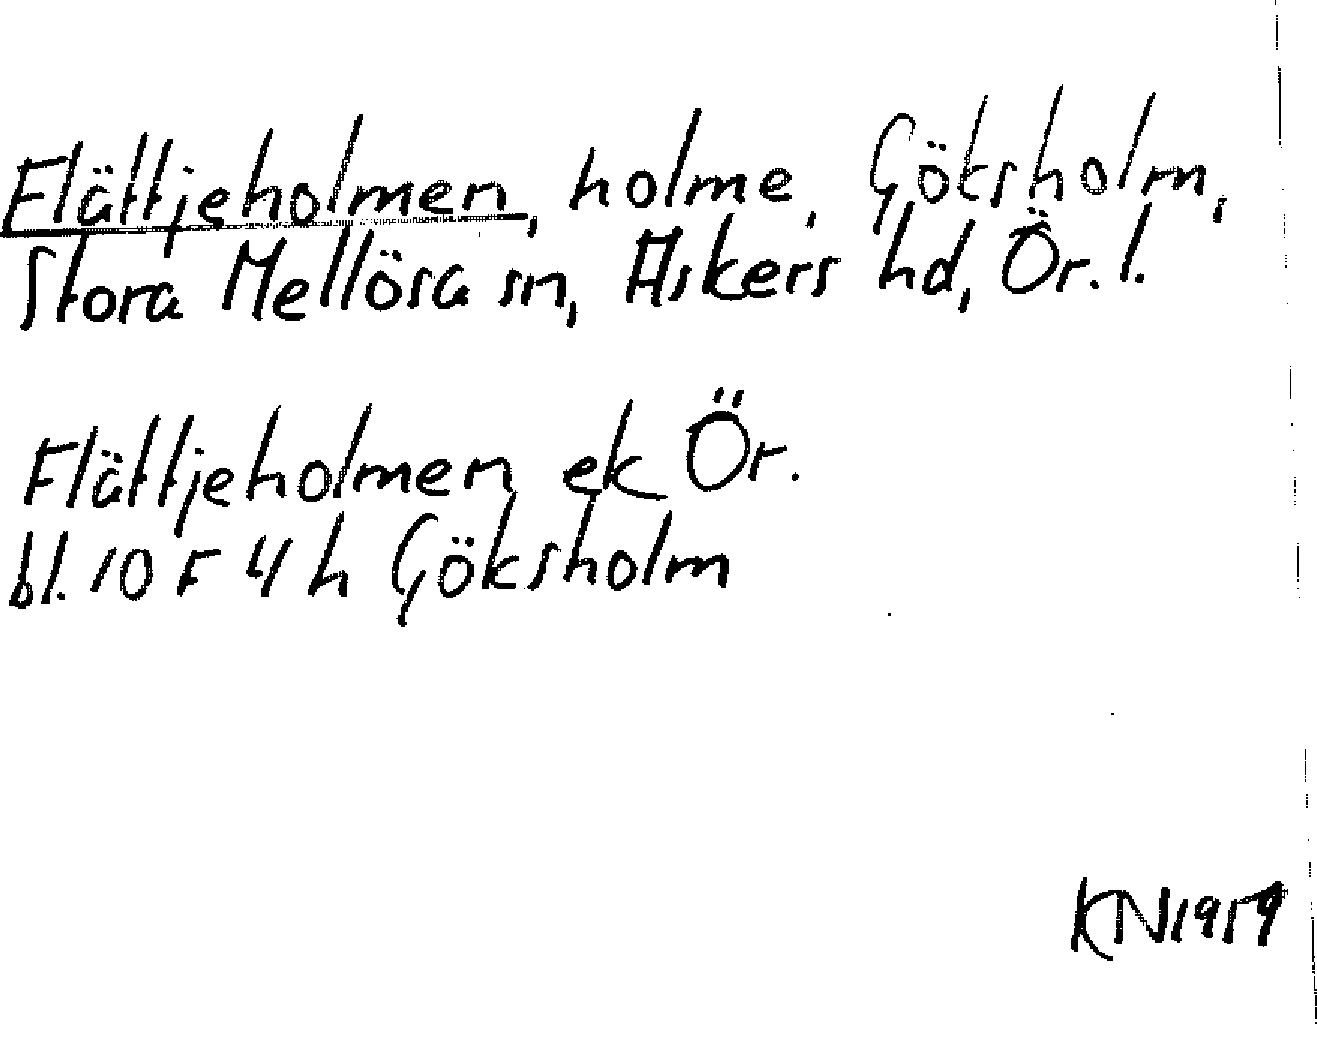 Flättjeholmen, holme, Göksholm,
Stora Mellösa sn, Askers hd, Ör. l.
Flättjeholmen ek Ör.
bl. 10 F 4 h Göksholm
KN 1959